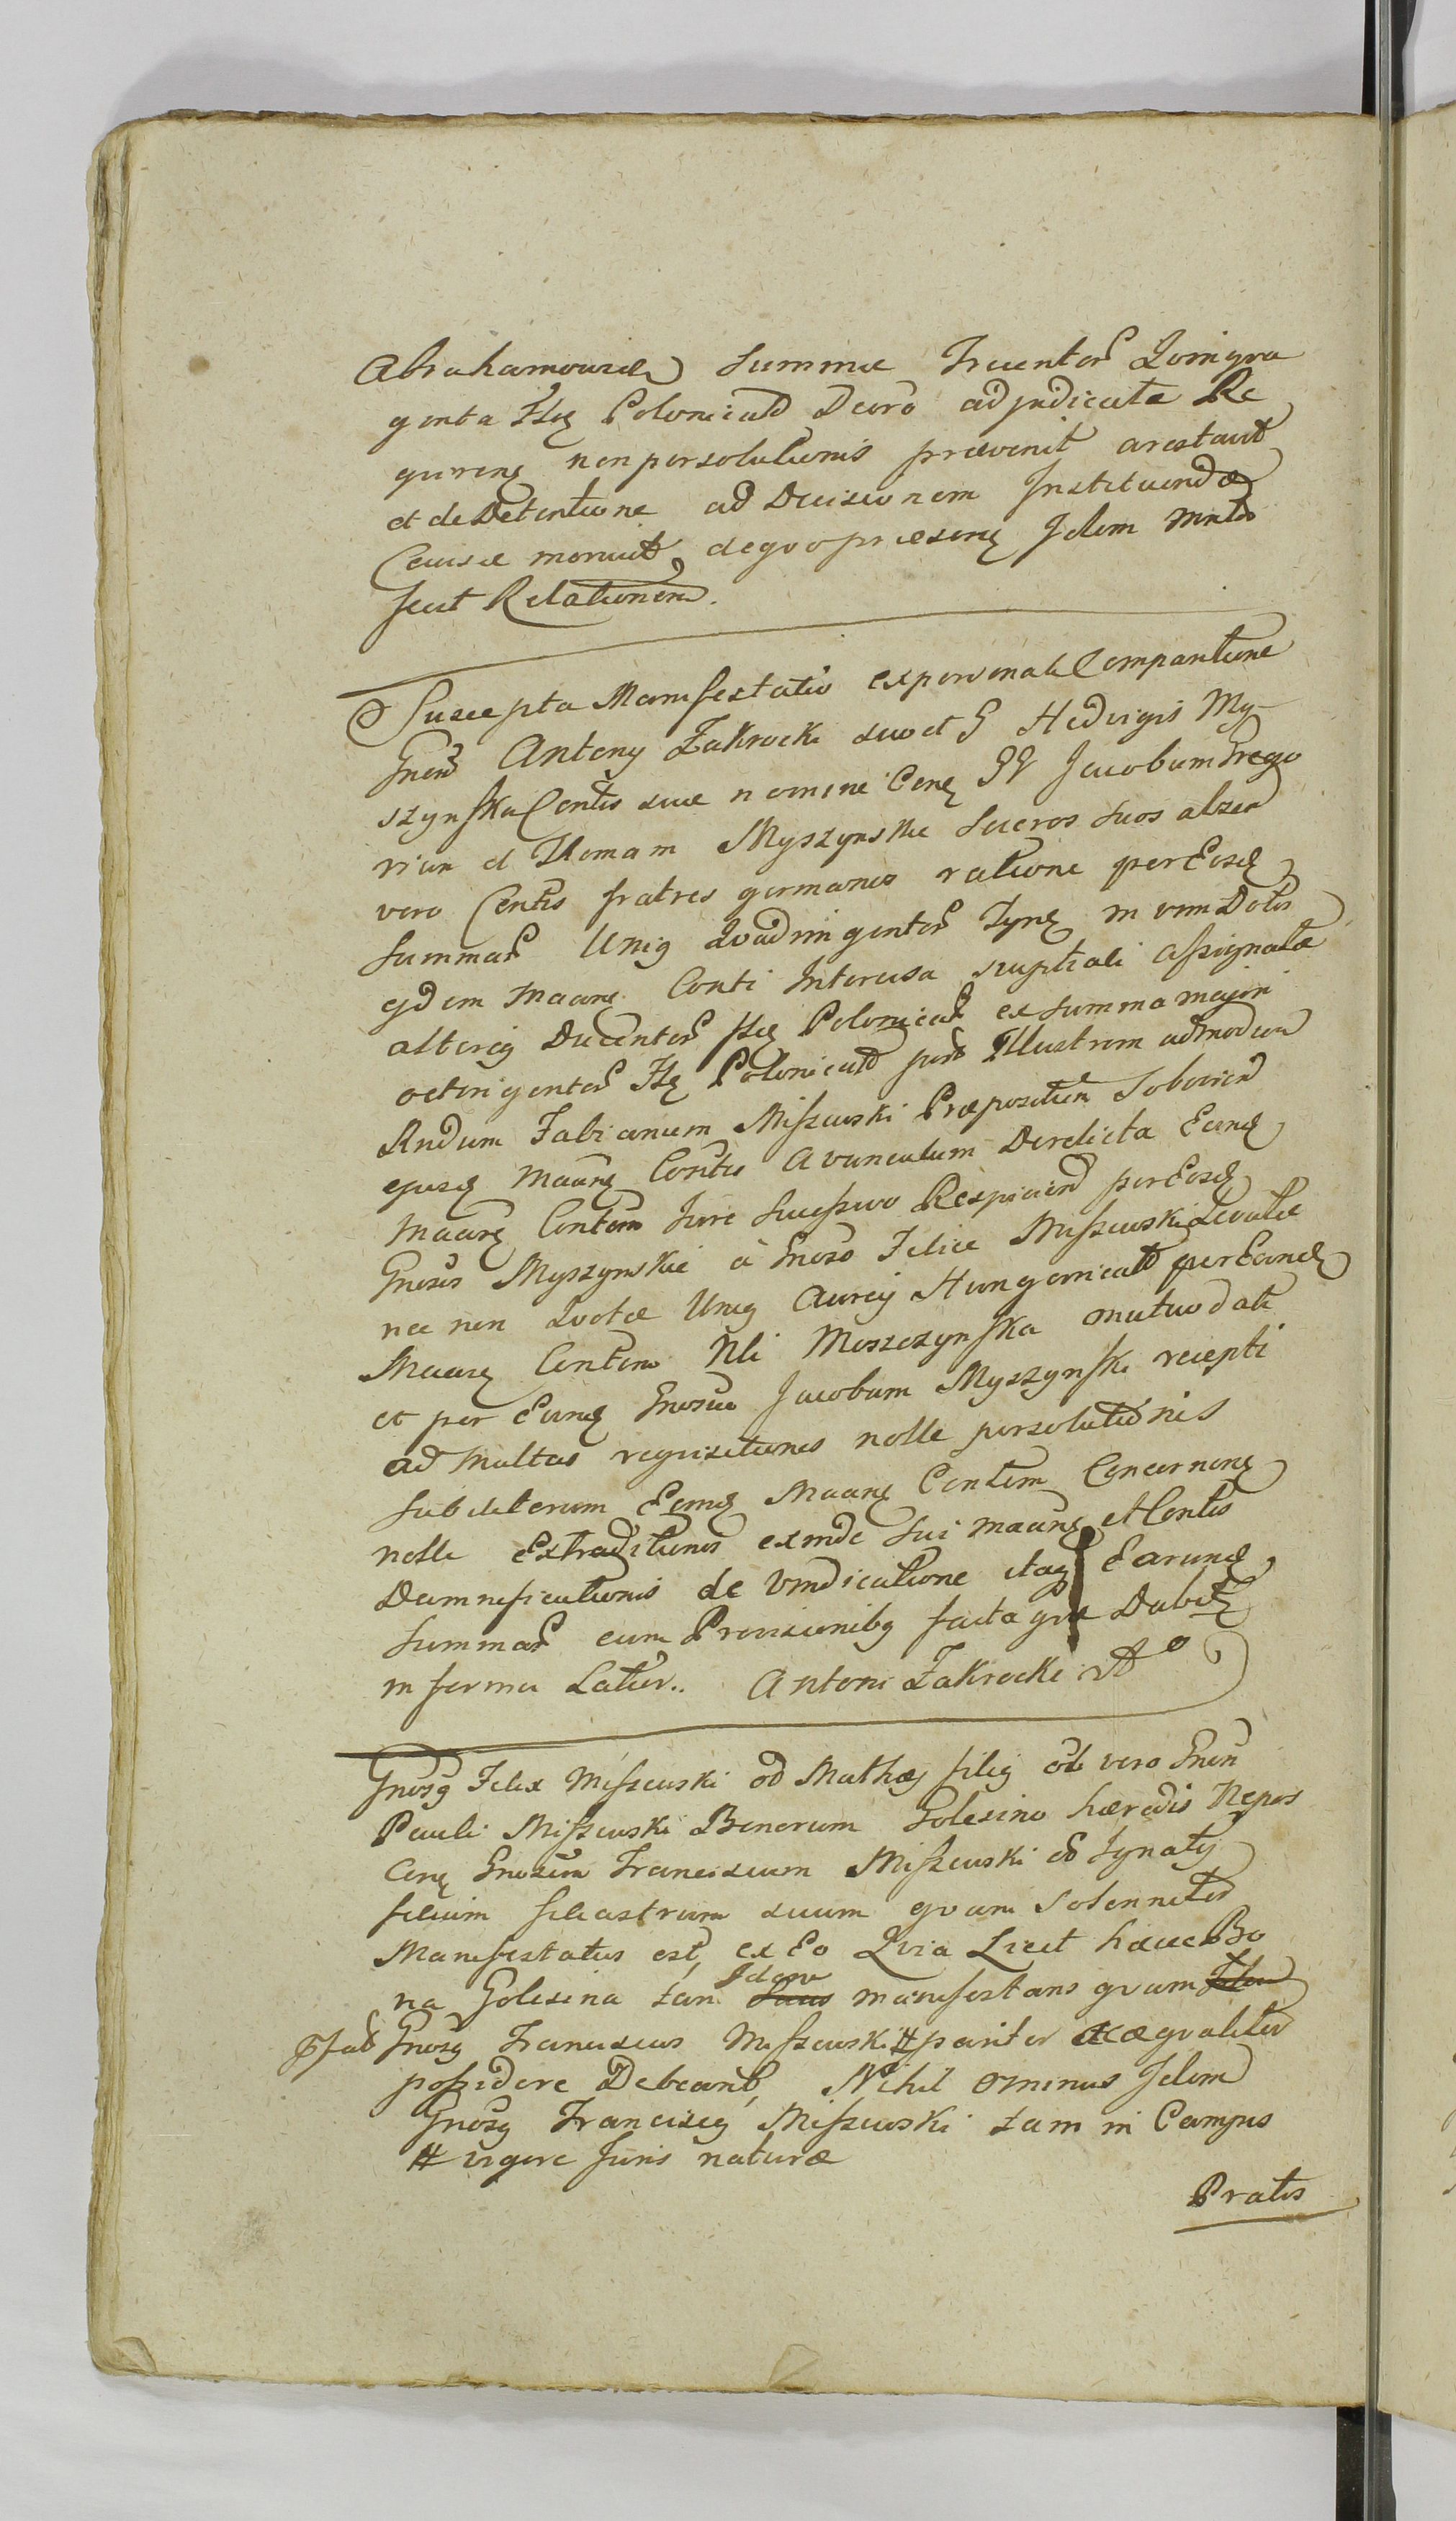 Abrahamowicz Summæ Trecentor Quinqua
ginta Flȩ Polonicalꝰ Dcoro adjudicatæ Re
quirenȩ non persolutionis prævenit arestavit
et de Detentione ad Decisionem Instituendæ
Causæ monuit, de quo præsenȩ Idem Mnlis
fecit Relationem.
Suscepta Manifestatio ex personali Comparitione
Gnen Antony Zakrocki suo et G Hedvigis My-
szynska Contis suæ nomine Conȩ GG Jacobum Grego
rium et Thomam Myszynskie Suceros suos alzer
vero Contis fratres germanos ratione per Eosd
Summar Uniȩ Quadringentor Tynȩ in vim Dotis
ejdem Maarnȩ Conti Intercisa nuptiali assignatæ
alterig Ducentor flȩ Polonicar ex summa majori
octingentor Flȩ Polonicalꝰ per Illustrem admodum
Rndum Fabianum Miszewski Præpositum Sobovien
ejusd Maarnȩ Contis avunculum Derelicta Eand
Maarnȩ Contem Jure Successivo Respicien per Eosd
Gnosos Myszynskie à Gnoso Felice Miszewski Levatæ
nec non Quotæ Uniȩ Aurej Hungaricalꝰ per Eand
Maarnȩ Contem Nli Moszczynska mutuo dati
et per Eund Gnosum Jacobum Myszynski recepti
ad Multas requisitiones nolle persolutionis
Subditorum Eand Maarnȩ Contem Concernenȩ
nolle Extraditionis exinde sui Maarnȩ et Contis
Damnificationis de Vindicatione itaq Earund
Summar cum Provisionibȩ facta quæ Dabitȩ
in forma Latior.. Antoni Zakrocki
Gnosȩ Felix Miszewski od Mathæj filiȩ ol vero Gnen
Pauli Miszewski Bonorum Golesino hæredis Nepos
Conȩ Gnosum Franciscum Miszewski od Ignatij
filium filiastrum suum quam Solenniter
Manifestatus est, ex Eo Quia Licet hæcce Bo
na Golesina tam Idem manifestans quam
Gnosȩ Franciscus Miszewski # pariter et æqualiter
possidere Debeant, Nihil ominus Idem
Gnosȩ Franciscȩ Miszewski tam in Campis
# vigore Juris naturæ
Pratis